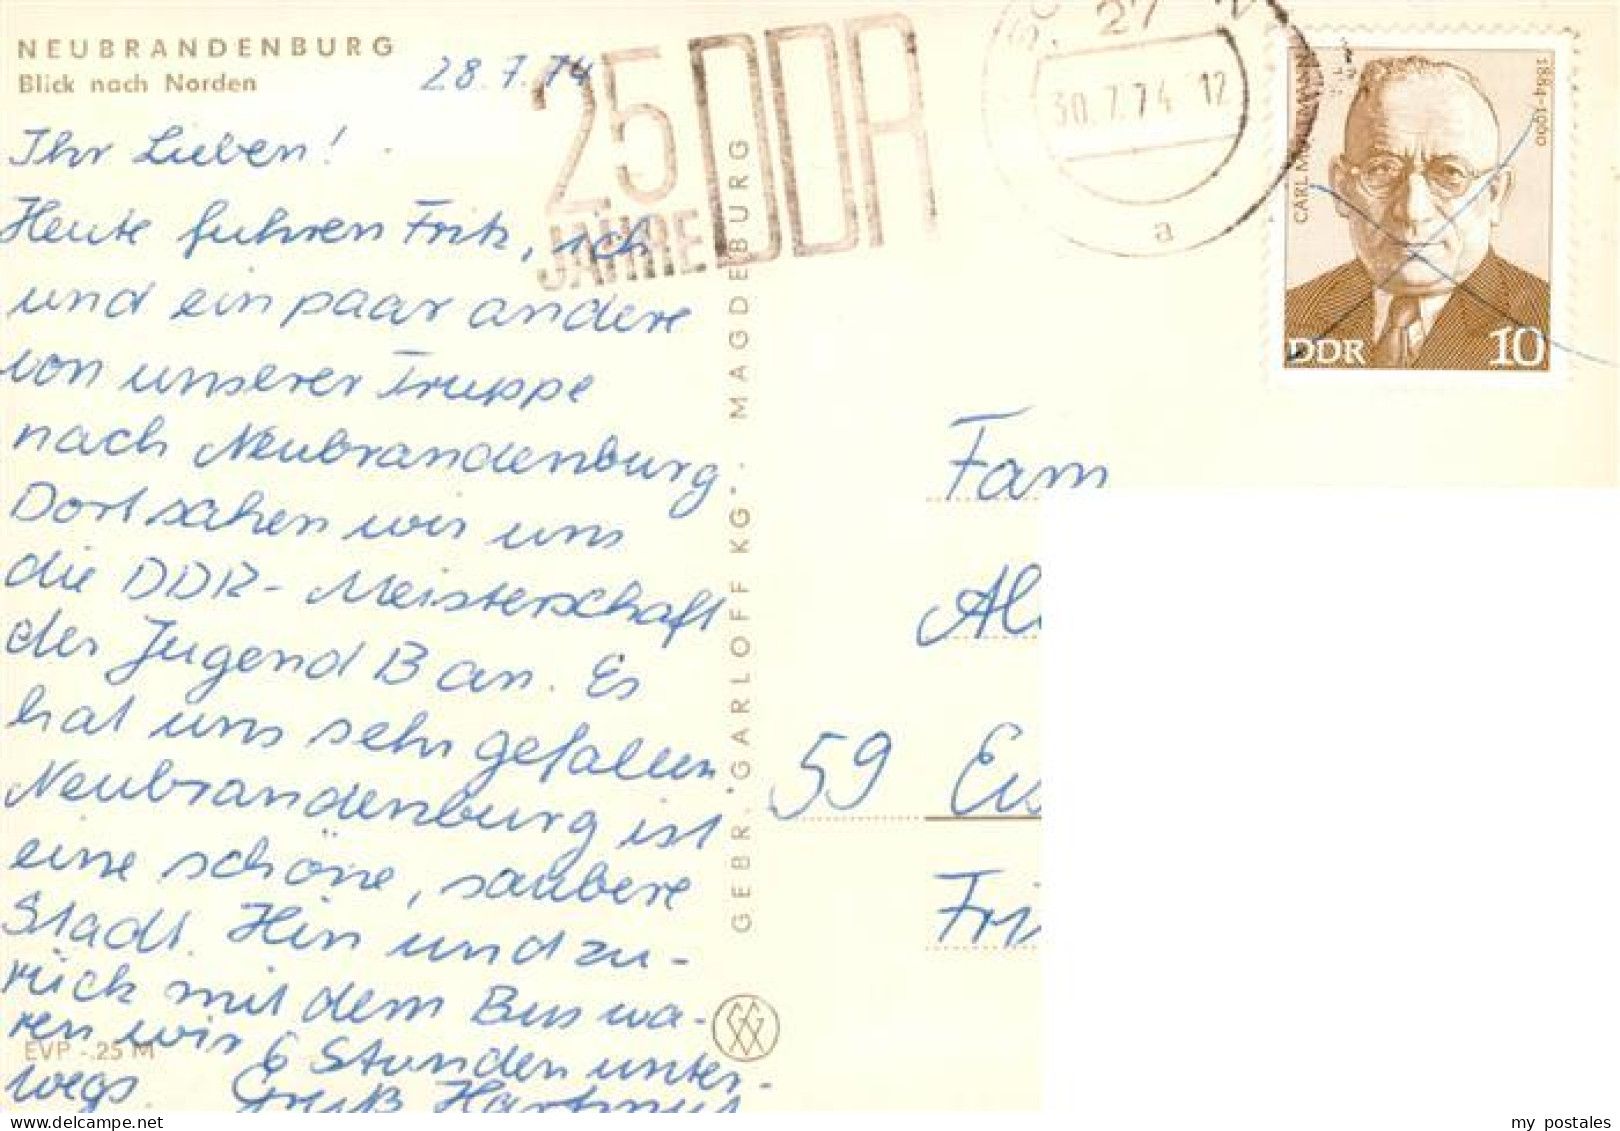 NEUBRANDENBURG
Blick nach Norden
28.7.74
Ihr Lieben!
Heute fuhren Fritz, ich
und ein paar andere
von unserer Truppe
nach Neubrandenburg
Dort sahen wir uns
die DDR-Meisterschaft
der Jugend B an. Es
hat uns sehr gefallen
Neubrandenburg ist
eine schöne, saubere
Stadt. Hin und zu-
rück mit dem Bus wa-
ren wir 6 Stunden unter-
wegs. Gruß Hartmut
EVP -.25 M
GEBR. GARLOFF KG · MAGDEBURG
25
JAHRE DDR
27
30.7.74 12
a
CARL
1884-1960
DDR 10
Fam
Al
59 Eis
Fri
my postales